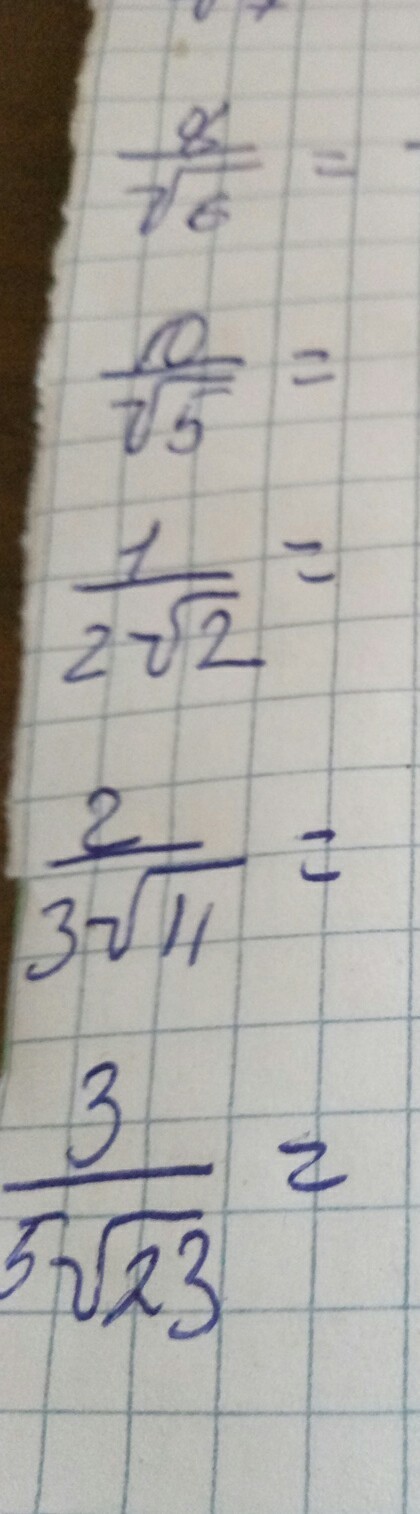 8/√6 =
10/√5 =
1/2√2 =
2/3√11 =
3/5√23 =